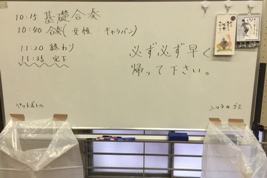 10:15 基礎合奏
10:40 合奏(女性 キャラバン)
11:20 終わり
11:25 完下
必ず必ず早く
帰って下さい。